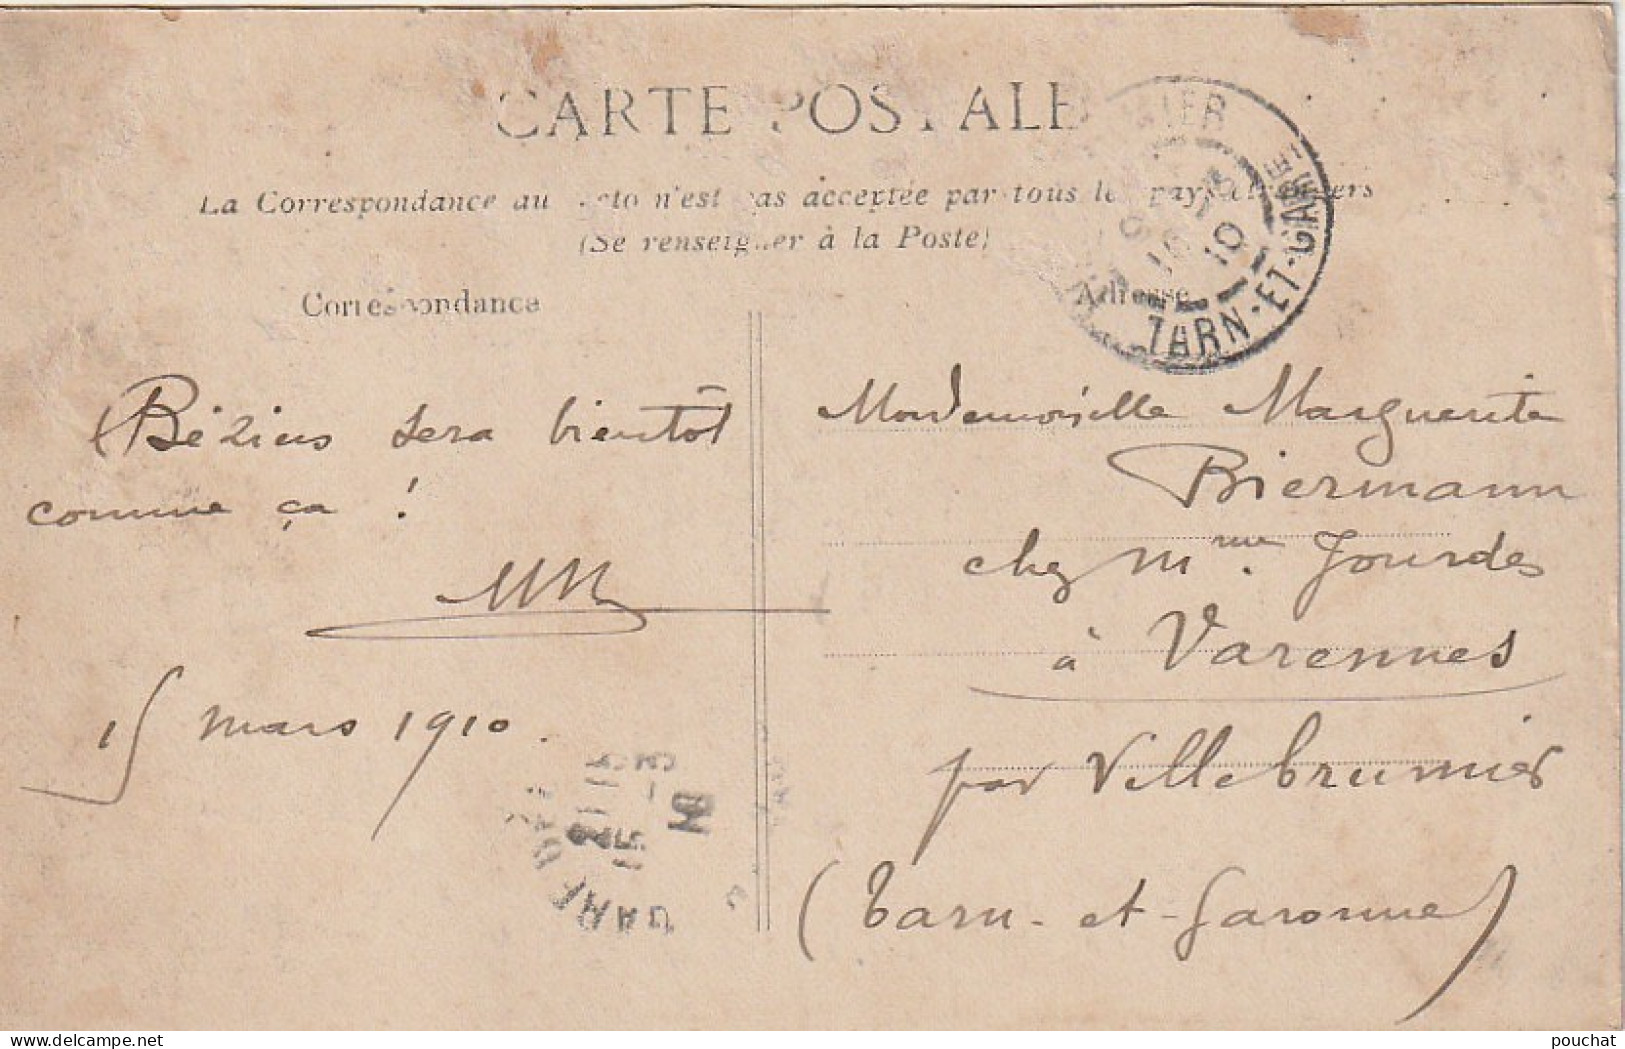 CARTE POSTALE
La Correspondance au recto n'est pas acceptée par tous les pays étrangers
(Se renseigner à la Poste)
Correspondance
Adresse
TARN-ET-GARNE
Béziers sera bientôt
comme ça !
15 mars 1910.
Mondemoiselle Marguerite
Biermann
chez Mme. Jourdes
à Varennes
par Villebrumier
(Tarn-et-Garonne)
delcampe.net
pouchat